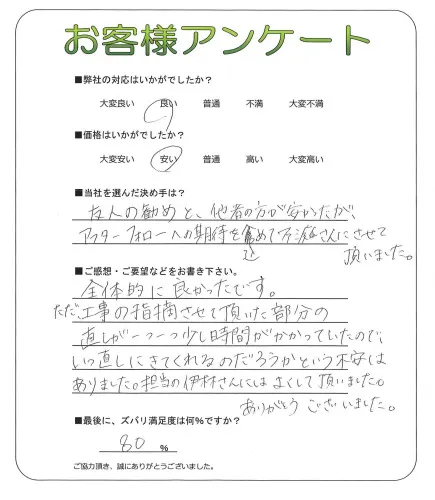 お客様アンケート
■弊社の対応はいかがでしたか？
大変良い 良い 普通 不満 大変不満
■価格はいかがでしたか？
大変安い 安い 普通 高い 大変高い
■当社を選んだ決め手は？
友人の勧めと、他者の方が安かったが、
アフターフォローへの期待を含めて
さんにさせて
頂いました。
■ご感想・ご要望などをお書き下さい。
全体的に良かったです。
ただ、工事の指摘させて頂いた部分の
直しが一つ一つ少し時間がかかっていたので、
いつ直しにきてくれるのだろうかという不安は
ありました。担当の伊林さんにはよくして頂いました。
ありがとうございました。
■最後に、ズバリ満足度は何%ですか？
80 %
ご協力頂き、誠にありがとうございました。